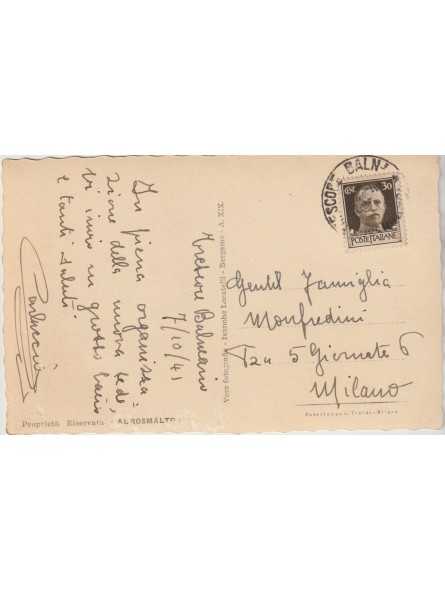 Trescore Balneario
7/10/41
In piena organizza-
zione della nuova sede,
Vi invio un grosso bacio
e tanti saluti
Carluccio
Proprietà Riservata - ALBOSMALTO
Vera fotografia - Jannche Locatelli - Bergamo - A. XIX
ESCORE BALN
CENT. 30
POSTE ITALIANE
Gentil Famiglia
Monfredini
P.za 5 Giornate 6
Milano